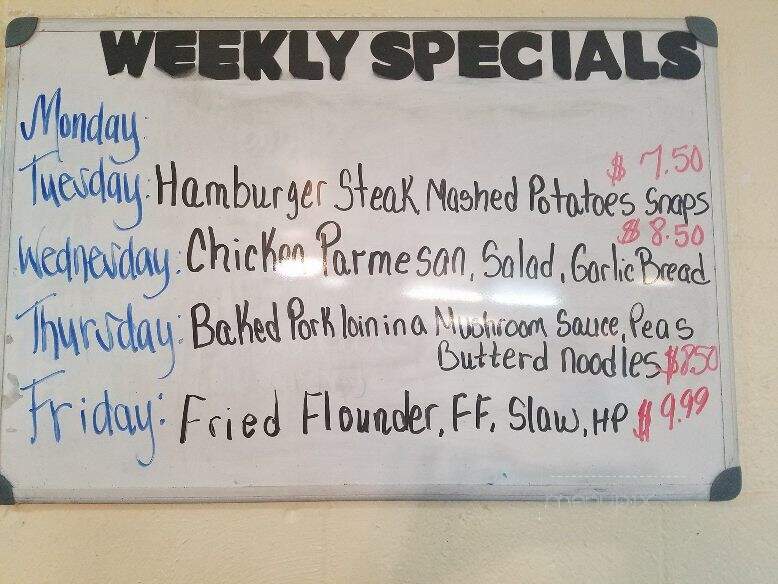 WEEKLY SPECIALS
Monday:
$ 7.50
Tuesday: Hamburger Steak Mashed Potatoes Snaps
$ 8.50
Wednesday: Chicken Parmesan, Salad, Garlic Bread
Thursday: Baked Pork loin in a Mushroom Sauce, Peas
Butterd noodles $8.50
Friday: Fried Flounder, FF, Slaw, HP $9.99
menupix